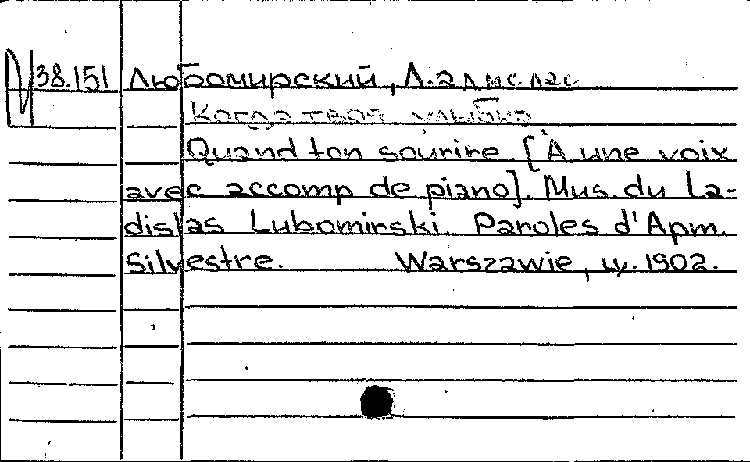 38.151 Любомирский, Л.адислас
Когда твоя улыбка
Quand ton sourire. [À une voix
avec accomp de piano]. Mus. du La-
dislas Lubomirski. Paroles d'Apm.
Silvestre. Warszawie, 1902.